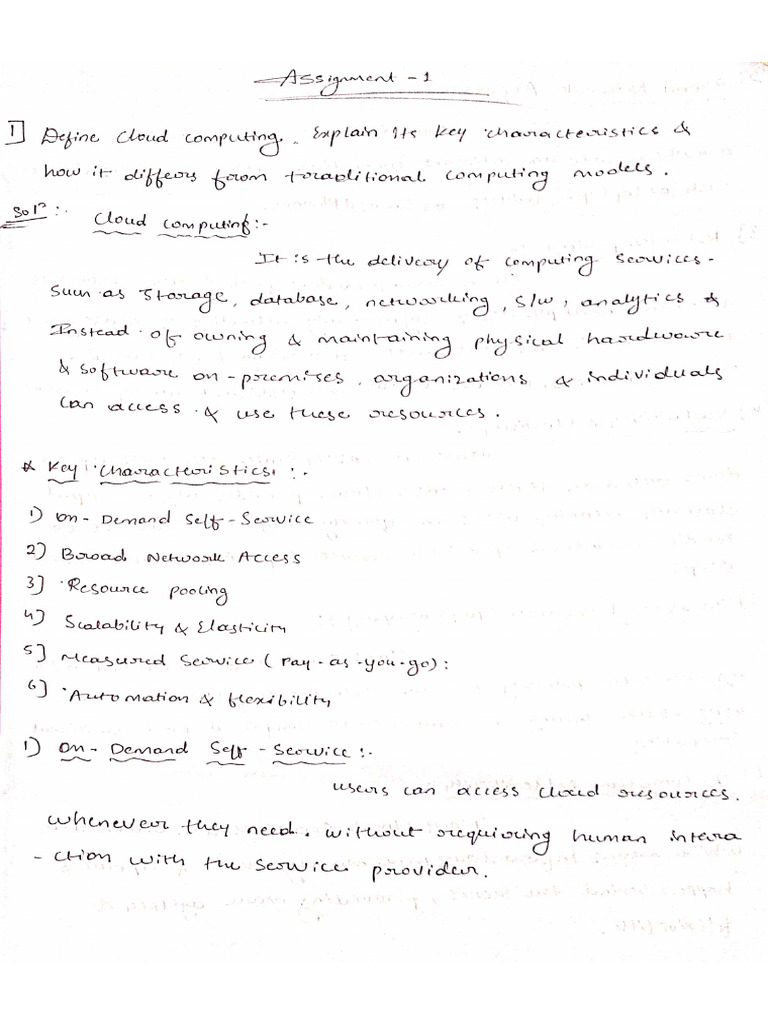 Assignment - 1
1] Define cloud computing. Explain Its key characteristics &
how it differs from traditional computing models.
Solⁿ :- Cloud computing :-
It is the delivery of computing services -
Such as storage, database, networking, S/w, analytics &
Instead of owning & maintaining physical hardware
& software on-premises, organizations & individuals
can access & use these resources.
* Key Characteristics :-
1) On-Demand Self-Service
2) Broad Network Access
3] Resource pooling
4] Scalability & Elasticity
5] Measured Service (Pay-as-you-go):
6] Automation & flexibility
1) On-Demand Self-Service :-
Users can access cloud resources.
Whenever they need, without requiring human intera
-ction with the service provider.